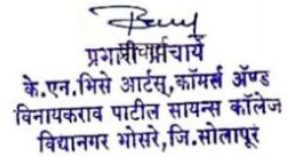 के.एन.भिसे आर्टस्,कॉमर्स ॲण्ड
विनायकराव पाटील सायन्स कॉलेज
विद्यानगर भोसरे,जि.सोलापूर